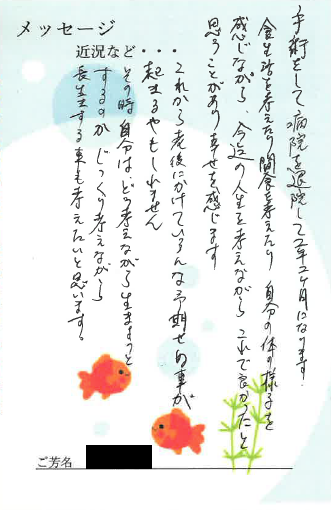 メッセージ
近況など・・・
手術をして、病院を退院して2年2ヶ月になります。
食生活を考えたり間食を考えたり 自分の体の様子を
感じながら、今迄の人生を考えながら これで良かったと
思うことがあり 幸せを感じます
これから老後にかけていろんな予期せぬ事が
起きるやもしれません
その時自分はどう考えながら生きようと
するのか じっくり考えながら
長生きする事も考えたいと思います。
ご芳名